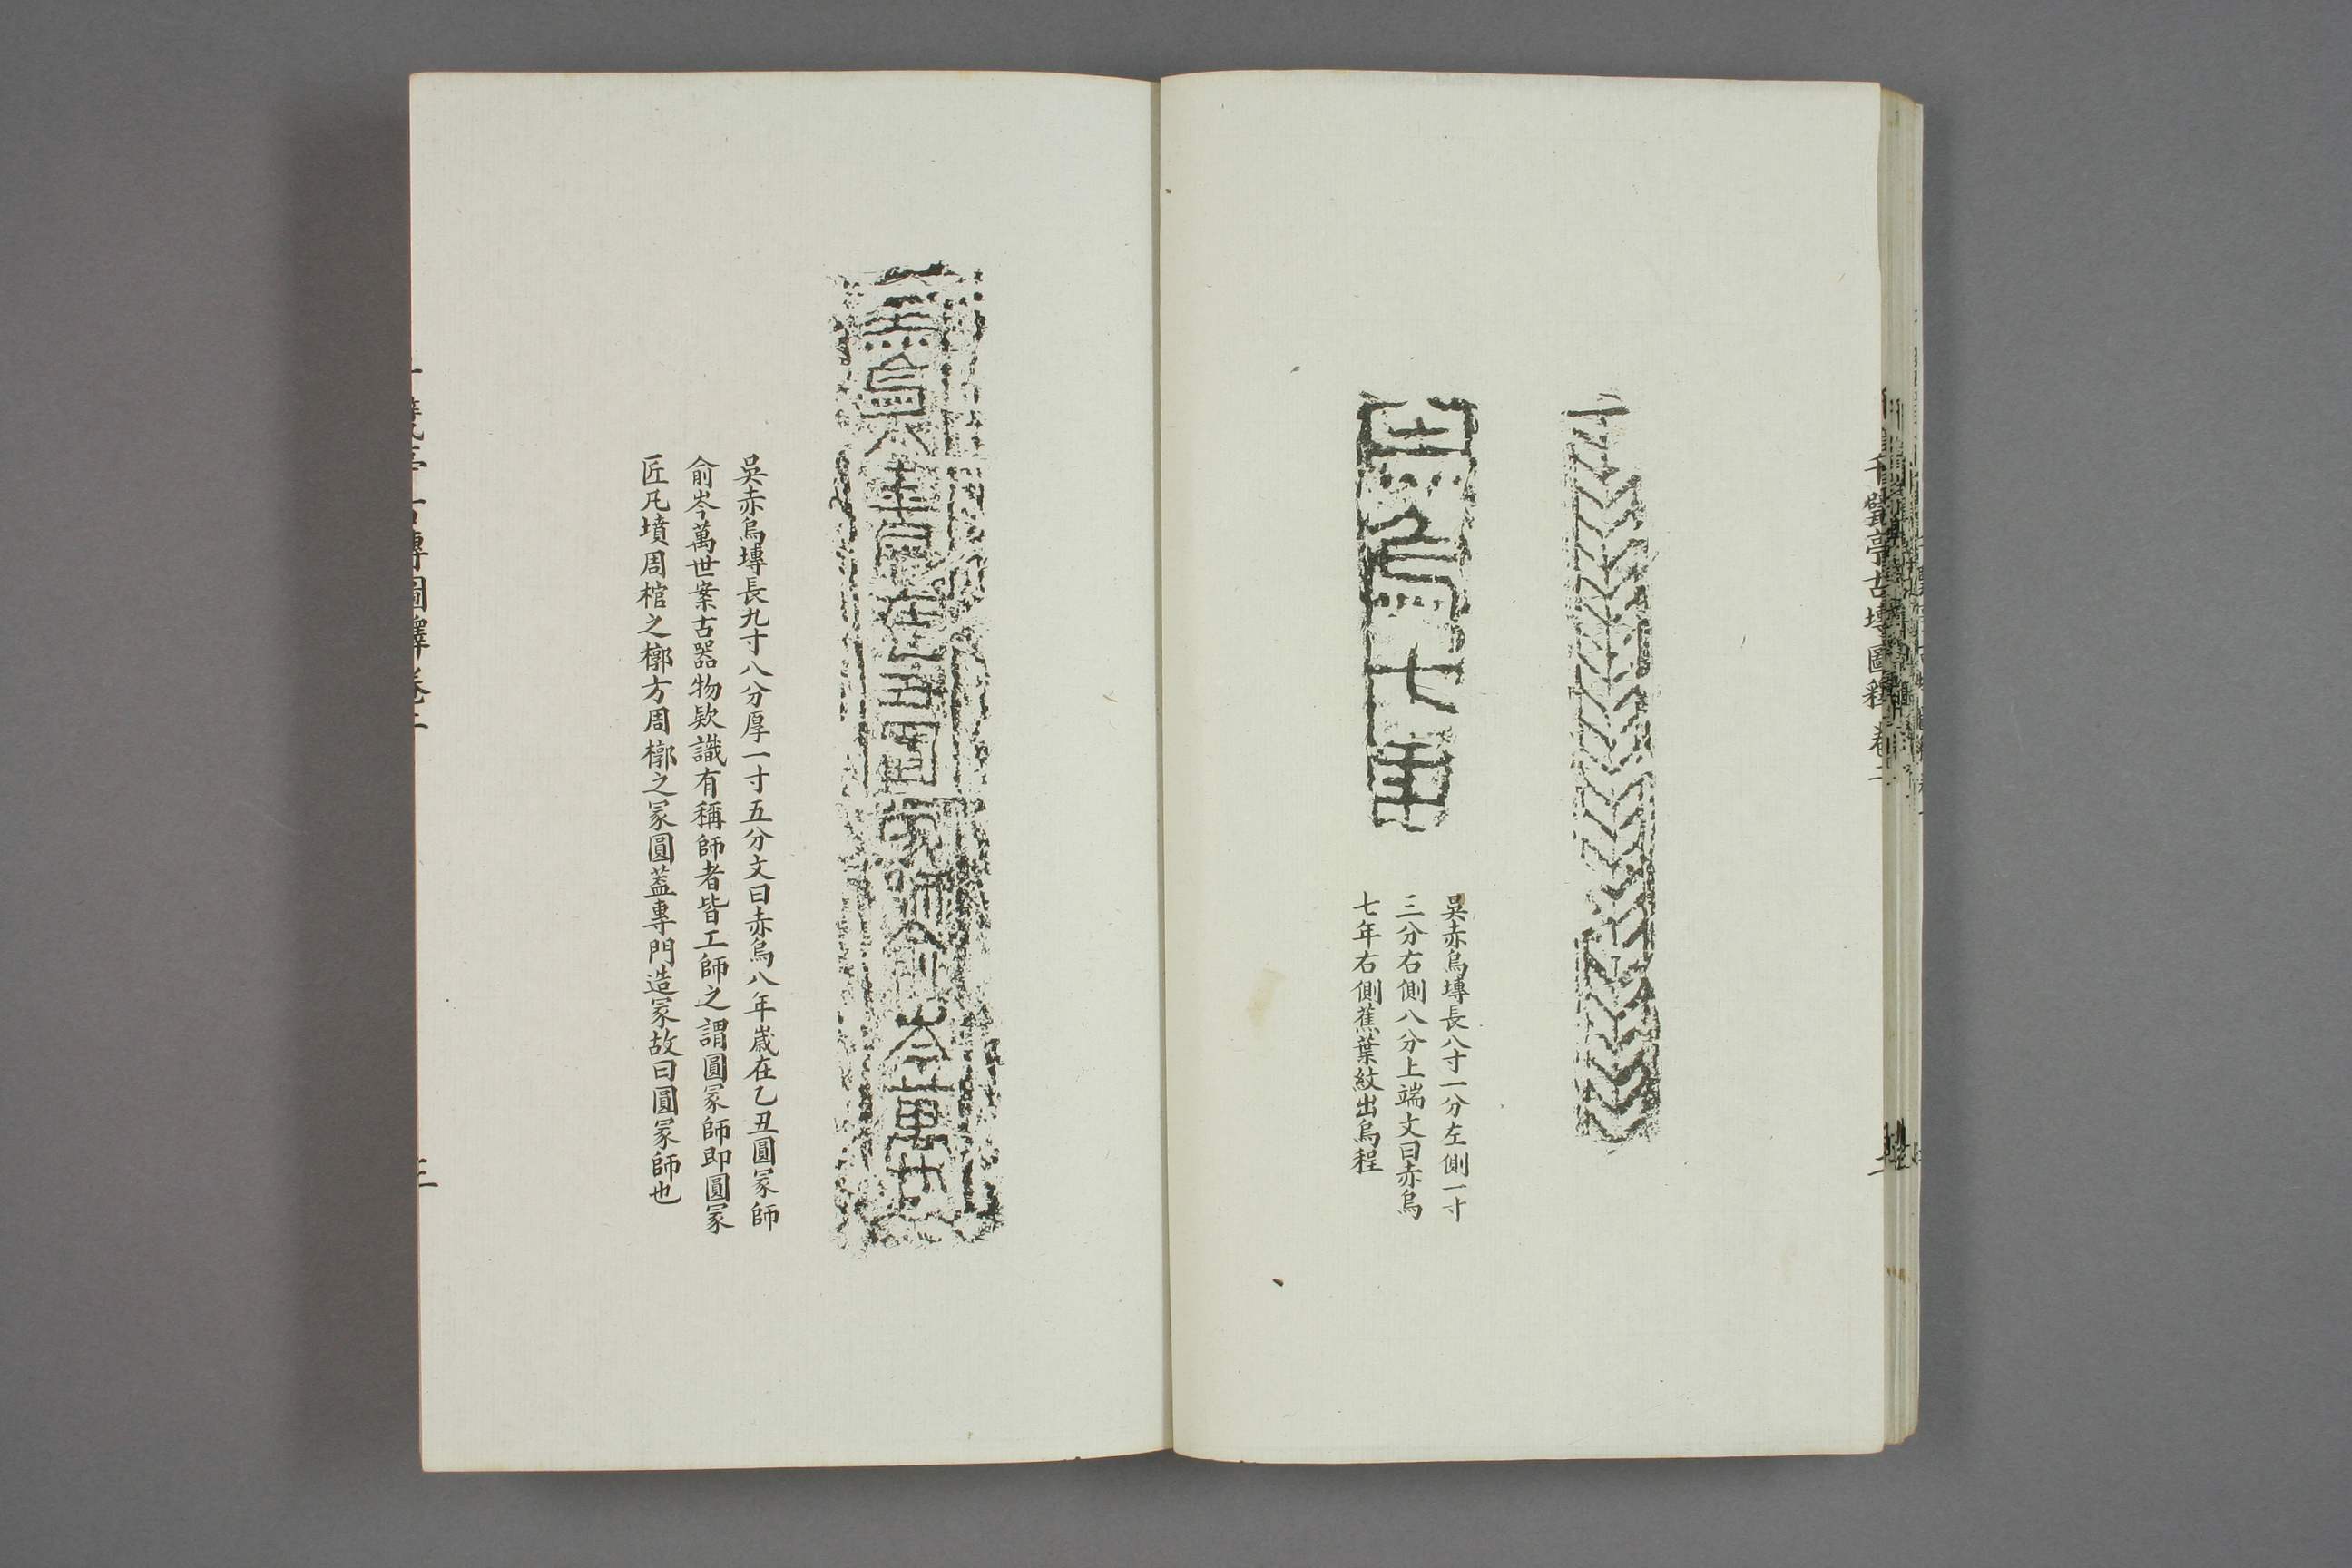 千甓亭古塼圖釋卷二
二
赤烏七年
吳赤烏塼長八寸一分左側一寸
三分右側八分上端文曰赤烏
七年右側蕉葉紋出烏程
赤烏八年歲在乙丑圓冢師俞岑萬世
吳赤烏塼長九寸八分厚一寸五分文曰赤烏八年嵗在乙丑圓冢師
俞岑萬世案古器物欵識有稱師者皆工師之謂圓冢師即圓冢
匠凡墳周棺之槨方周槨之冢圓蓋專門造冢故曰圓冢師也
三